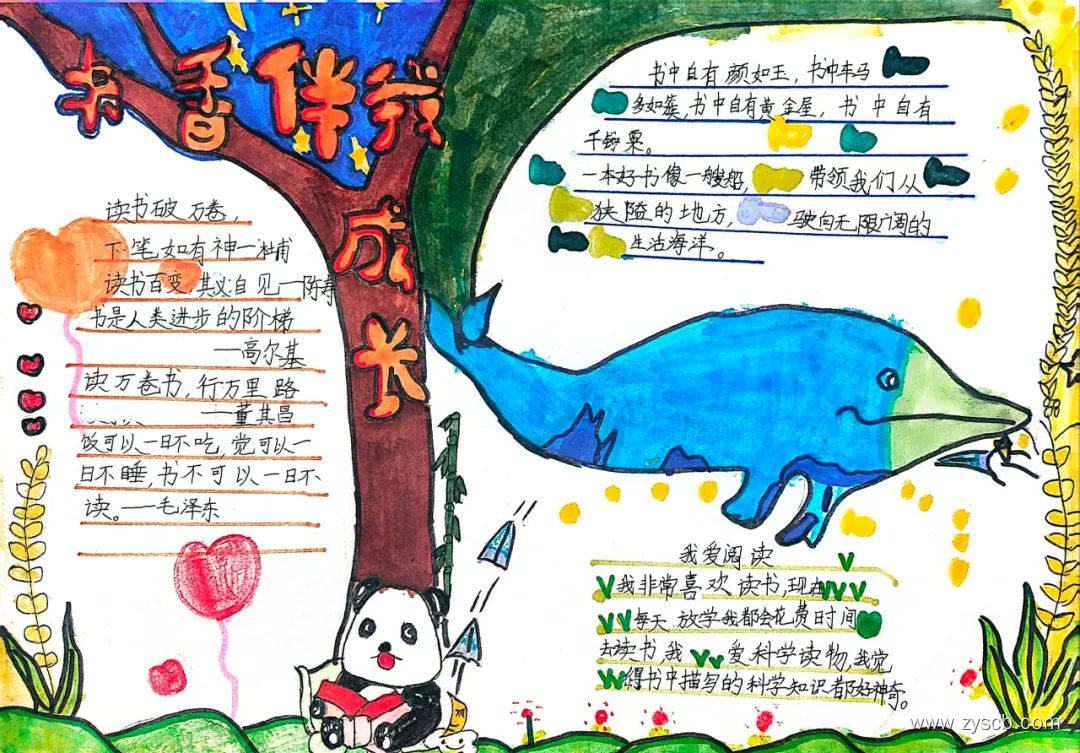 书香伴我成长
读书破万卷，
下笔如有神一杜甫
读书百变，其义自见一陈寿
书是人类进步的阶梯
—高尔基
读万卷书，行万里路
—董其昌
饭可以一日不吃，觉可以一
日不睡，书不可以一日不
读。—毛泽东
书中自有颜如玉，书中车马
多如簇，书中自有黄金屋，书中自有
千钟粟。
一本好书像一艘船，带领我们从
狭隘的地方，驶向无限广阔的
生活海洋。
我爱阅读
我非常喜欢读书，现在
每天放学我都会花费时间
去读书，我爱科学读物，我觉
得书中描写的科学知识都好神奇。
www.zyscb.com